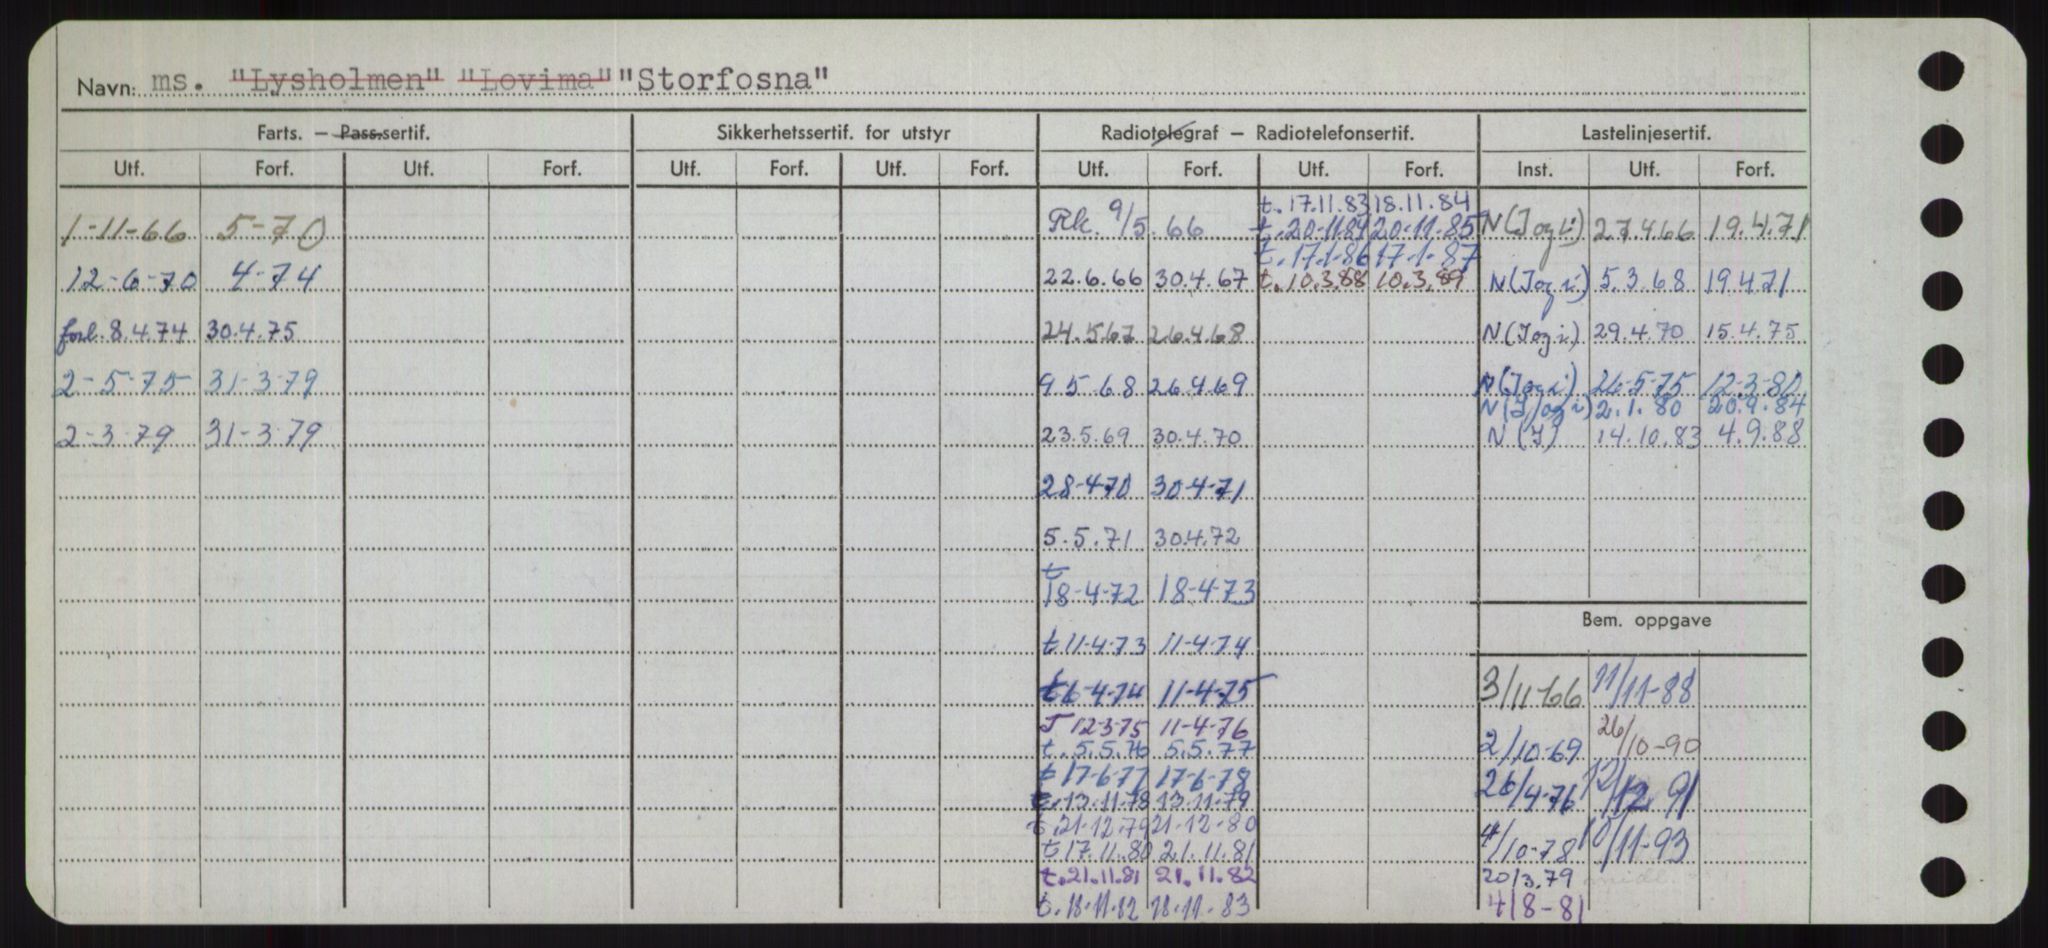 Navn: ms. "Lysholmen" "Lovima" "Storfosna"
Farts. — Pass.sertif. Sikkerhetssertif. for utstyr Radiotelegraf — Radiotelefonsertif. Lastelinjesertif.
Utf. Forf. Utf. Forf. Utf. Forf. Utf. Forf. Utf. Forf. Utf. Forf. Inst. Utf. Forf.
t. 17.11.83 18.11.84
1-11-66 5-70 Rk. 9/5.66 t. 20-11-84 20-11-85 N(I og i) 27.4.66 19.4.71
t. 17.1-86 17-1-87
12-6-70 4-74 22.6.66 30.4.67 t. 10.3.88 10.3.89 N(I og i) 5.3.68 19.4.71
forl. 8.4.74 30.4.75 24.5.67 26.4.68 N(I og i) 29.4.70 15.4.75
2-5-75 31-3-79 9.5-68 26.4.69 N(I og i) 26-5-75 12-3-80
N(I og i) 2.1.80 20.9.84
2-3-79 31-3-79 23.5.69 30.4.70 N (I) 14.10.83 4.9.88
28-4-70 30-4-71
5.5.71 30.4.72
t
18-4-72 18-4-73
Bem. oppgave
t 11-4-73 11-4-74
t 6-4-74 11-4-75 3/11-66 11/11-88
T 12-3-75 11-4-76
t. 5.5.76 5.5.77 2/10-69 26/10-90
t 17-6-77 17-6-78 26/4-76 12/12 91
t. 13.11.78 13.11.79
t. 21-12.79 21-12-80
t 17.11.80 21.11.81 4/10-78 10/11-93
t. 21.11.81 21.11.82 20/3.79
t. 18.11.82 18.11.83 4/8-81